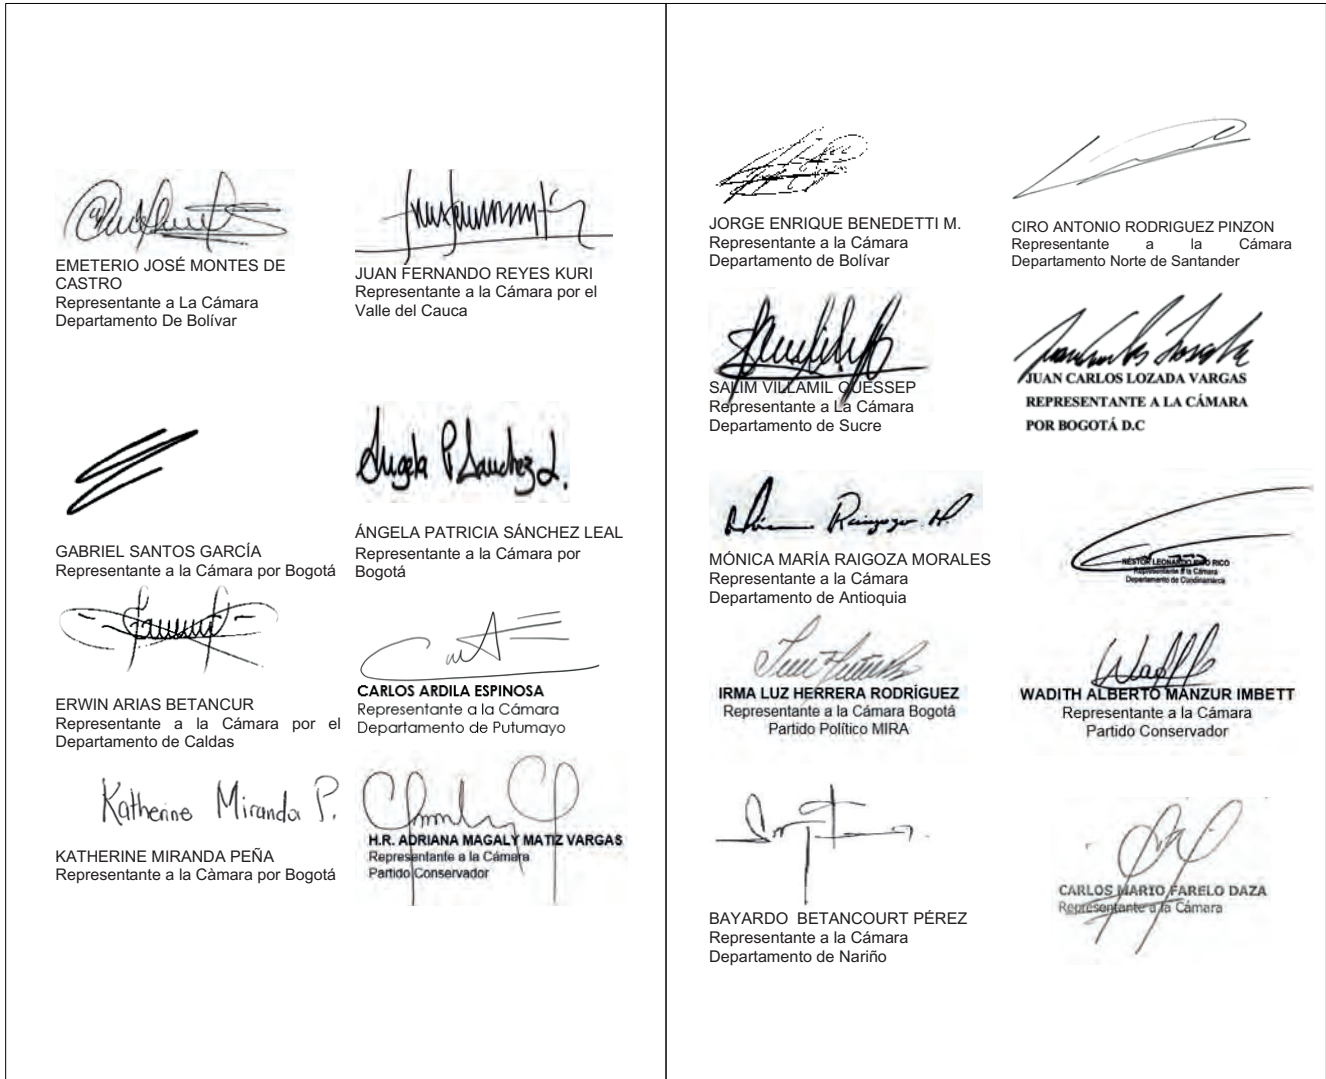 EMETERIO JOSÉ MONTES DE
CASTRO
Representante a La Cámara
Departamento De Bolívar
JUAN FERNANDO REYES KURI
Representante a la Cámara por el
Valle del Cauca
GABRIEL SANTOS GARCÍA
Representante a la Cámara por Bogotá
Ángela P Sanchez L.
ÁNGELA PATRICIA SÁNCHEZ LEAL
Representante a la Cámara por
Bogotá
ERWIN ARIAS BETANCUR
Representante a la Cámara por el
Departamento de Caldas
CARLOS ARDILA ESPINOSA
Representante a la Cámara
Departamento de Putumayo
Katherine Miranda P.
KATHERINE MIRANDA PEÑA
Representante a la Càmara por Bogotá
H.R. ADRIANA MAGALY MATIZ VARGAS
Representante a la Cámara
Partido Conservador
JORGE ENRIQUE BENEDETTI M.
Representante a la Cámara
Departamento de Bolívar
CIRO ANTONIO RODRIGUEZ PINZON
Representante a la Cámara
Departamento Norte de Santander
SALIM VILLAMIL QUESSEP
Representante a La Cámara
Departamento de Sucre
JUAN CARLOS LOZADA VARGAS
REPRESENTANTE A LA CÁMARA
POR BOGOTÁ D.C
MÓNICA MARÍA RAIGOZA MORALES
Representante a la Cámara
Departamento de Antioquia
NÉSTOR LEONARDO RICO RICO
Representante a la Cámara
Departamento de Cundinamarca
IRMA LUZ HERRERA RODRÍGUEZ
Representante a la Cámara Bogotá
Partido Político MIRA
WADITH ALBERTO MANZUR IMBETT
Representante a la Cámara
Partido Conservador
BAYARDO BETANCOURT PÉREZ
Representante a la Cámara
Departamento de Nariño
CARLOS MARIO FARELO DAZA
Representante a la Cámara